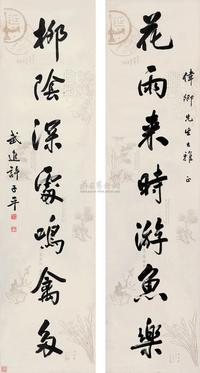 花雨来時游魚樂
偉卿先生大雅正
柳陰深處鳴禽多
武進許子平